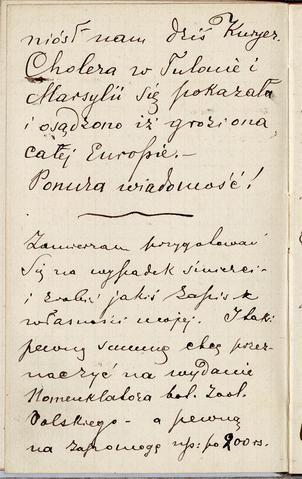 niósł nam dziś Kuryer.
Cholera w Tulonie i
Marsylii się pokazała
i osądzono iż grozi ona
całej Europie.—
Ponura wiadomość!
Zamierzam przygotować
się na wypadek śmierci-
i zrobić jakiś zapis z
własności mojej. I tak:
pewną summę chcę prze-
naczyć na wydanie
Nomenklatora bot. Zool.
Polskiego - a pewną
na zapomogę np: po 200 rs.